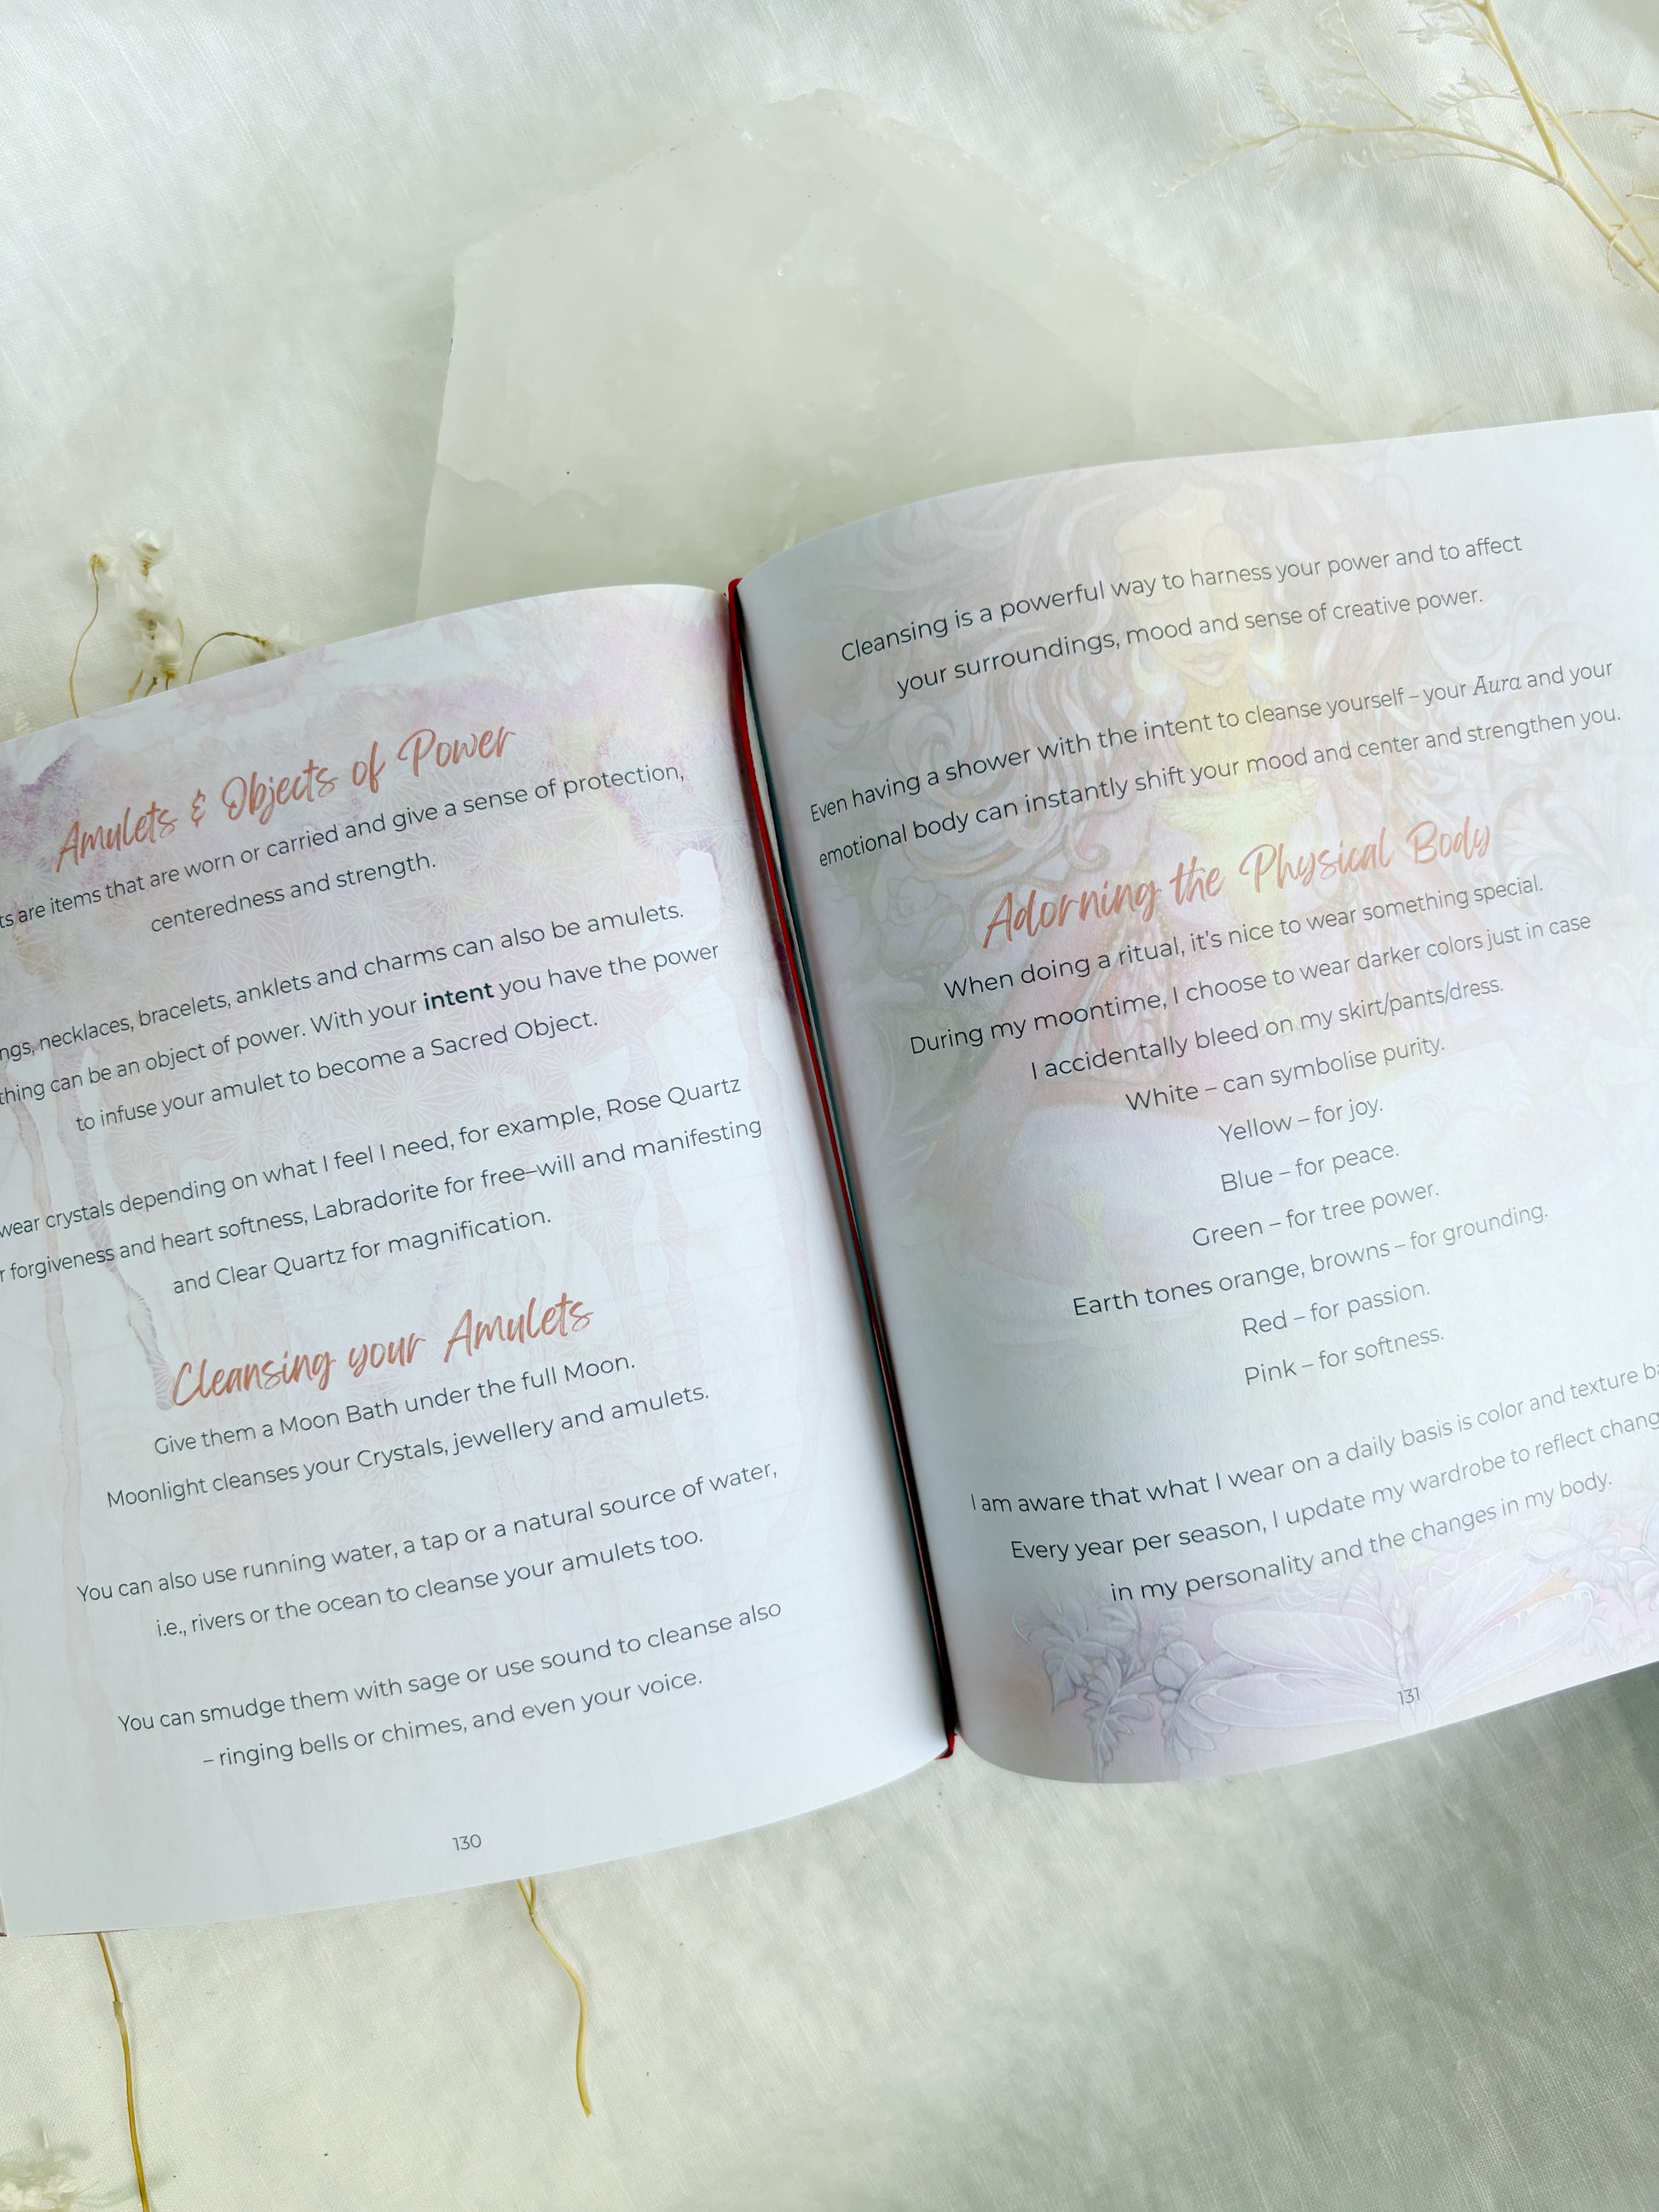 Amulets & Objects of Power
are items that are worn or carried and give a sense of protection,
centeredness and strength.
necklaces, bracelets, anklets and charms can also be amulets.
can be an object of power. With your intent you have the power
to infuse your amulet to become a Sacred Object.
wear crystals depending on what I feel I need, for example, Rose Quartz
forgiveness and heart softness, Labradorite for free–will and manifesting
and Clear Quartz for magnification.
Cleansing your Amulets
Give them a Moon Bath under the full Moon.
Moonlight cleanses your Crystals, jewellery and amulets.
You can also use running water, a tap or a natural source of water,
i.e., rivers or the ocean to cleanse your amulets too.
You can smudge them with sage or use sound to cleanse also
– ringing bells or chimes, and even your voice.
130
Cleansing is a powerful way to harness your power and to affect
your surroundings, mood and sense of creative power.
Even having a shower with the intent to cleanse yourself – your Aura and your
emotional body can instantly shift your mood and center and strengthen you.
Adorning the Physical Body
When doing a ritual, it's nice to wear something special.
During my moontime, I choose to wear darker colors just in case
I accidentally bleed on my skirt/pants/dress.
White – can symbolise purity.
Yellow – for joy.
Blue – for peace.
Green – for tree power.
Earth tones orange, browns – for grounding.
Red – for passion.
Pink – for softness.
I am aware that what I wear on a daily basis is color and texture
Every year per season, I update my wardrobe to reflect
in my personality and the changes in my body.
131